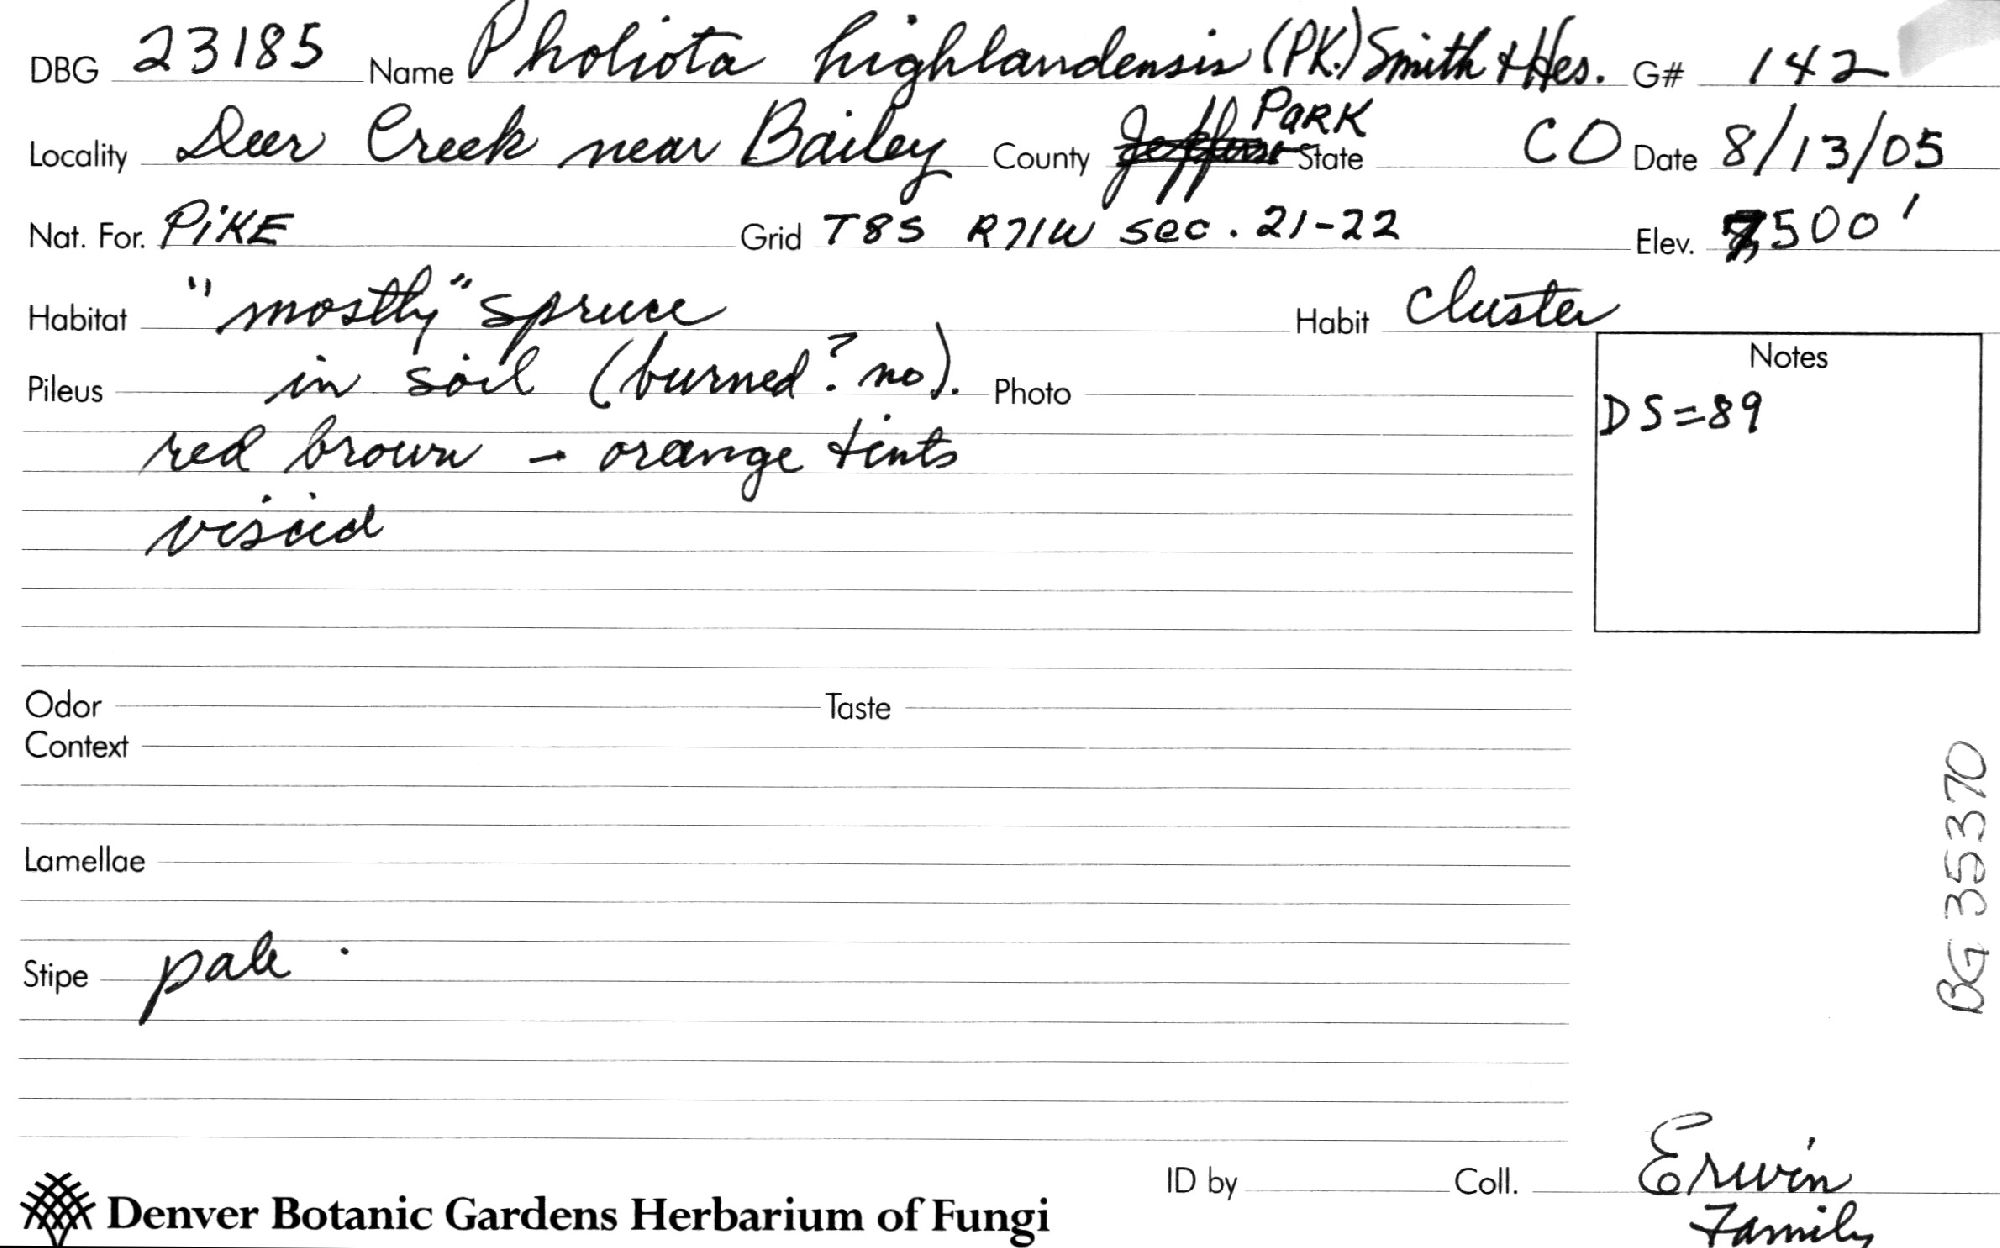 DBG 23185 Name Pholiota highlandensis (PK.) Smith & Hes. G# 142
Locality Deer Creek near Bailey County PARK State CO Date 8/13/05
Nat. For. PiKE Grid T8S R71W sec. 21-22 Elev. 7500'
Habitat "mostly" spruce Habit Cluster
Pileus in soil (burned? no). Photo
Notes
DS=89
red brown - orange tints
viscid
Odor Taste
Context
Lamellae
Stipe pale.
BG 35370
ID by Coll. Erwin
Family
Denver Botanic Gardens Herbarium of Fungi